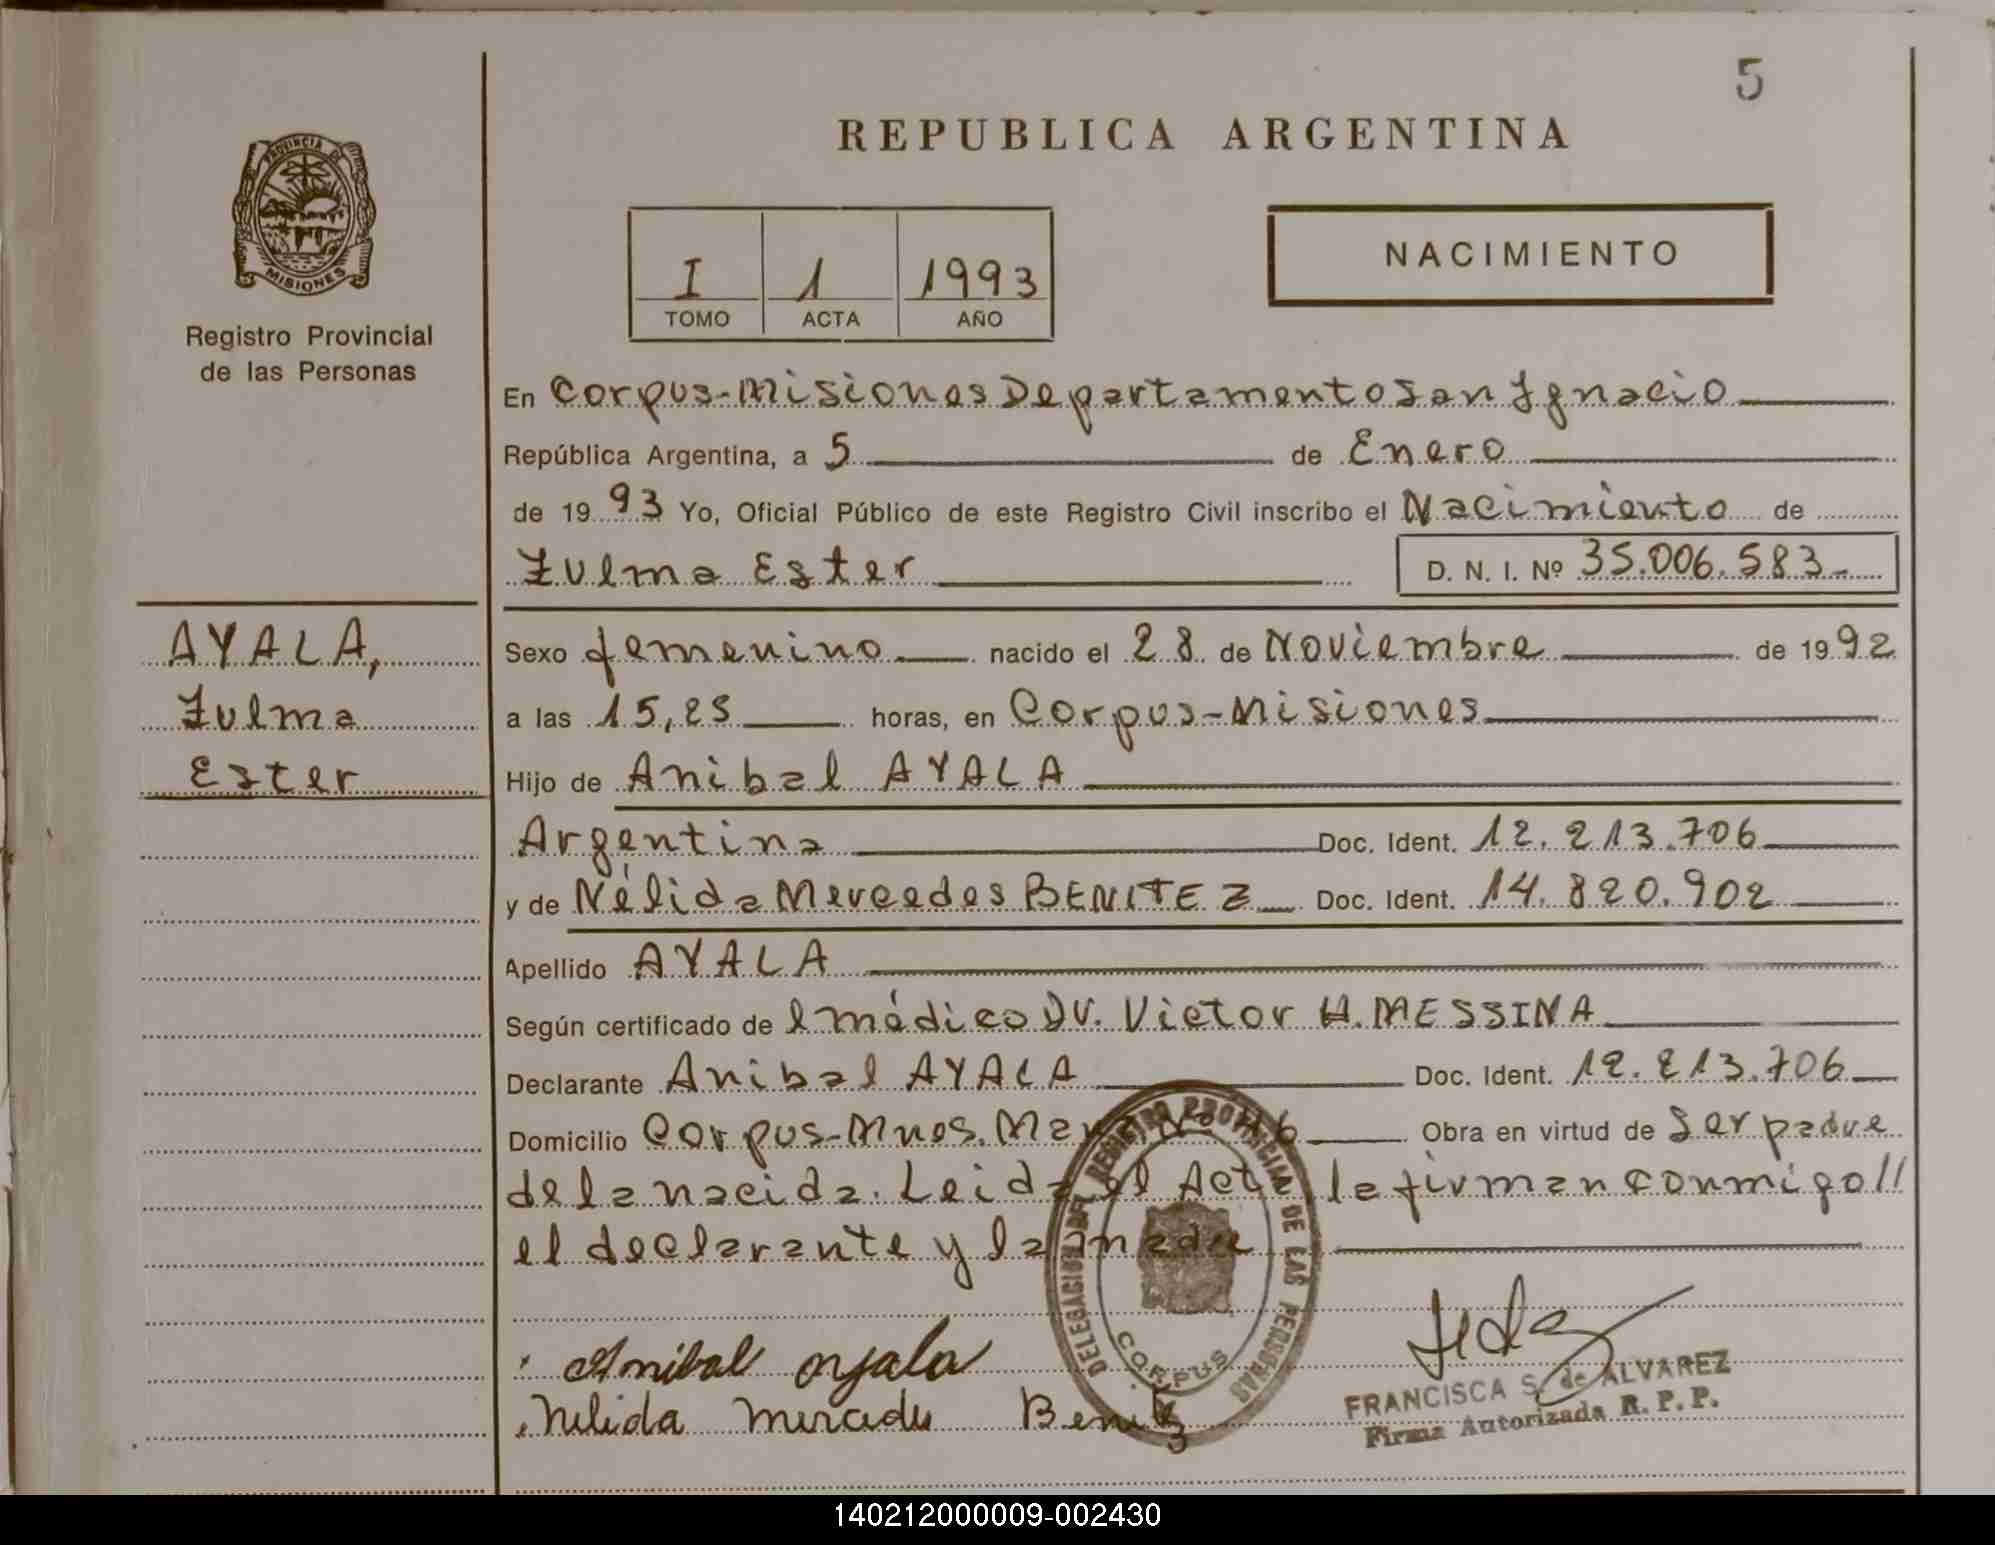 5
REPUBLICA ARGENTINA
PROVINCIA DE
MISIONES
Registro Provincial
de las Personas
I 1 1993
TOMO ACTA AÑO
NACIMIENTO
En Corpus-Misiones Departamento San Ignacio
República Argentina, a 5 de Enero
de 1993 Yo, Oficial Público de este Registro Civil inscribo el Nacimiento de
Zulma Ester D. N. I. Nº 35.006.583-
AYALA,
Zulma
Ester
Sexo femenino nacido el 28 de Noviembre de 1992
a las 15,25 horas, en Corpus-Misiones
Hijo de Anibal AYALA
Argentina Doc. Ident. 12.213.706
y de Nélida Mercedes BENITEZ Doc. Ident. 14.820.902
Apellido AYALA
Según certificado de l médico Dr. Victor H. MESSINA
Declarante Anibal AYALA Doc. Ident. 12.213.706
Domicilio Corpus-Mnes. Obra en virtud de Ser padre
de la nacida. Leida el Acta la firman conmigo//
el declarante y la madre
DELEGACION DEL REGISTRO PROVINCIAL DE LAS PERSONAS
CORPUS
Anibal ayala
Nelida Mercedes Benitez
FRANCISCA S. de ALVAREZ
Firma Autorizada R. P. P.
140212000009-002430